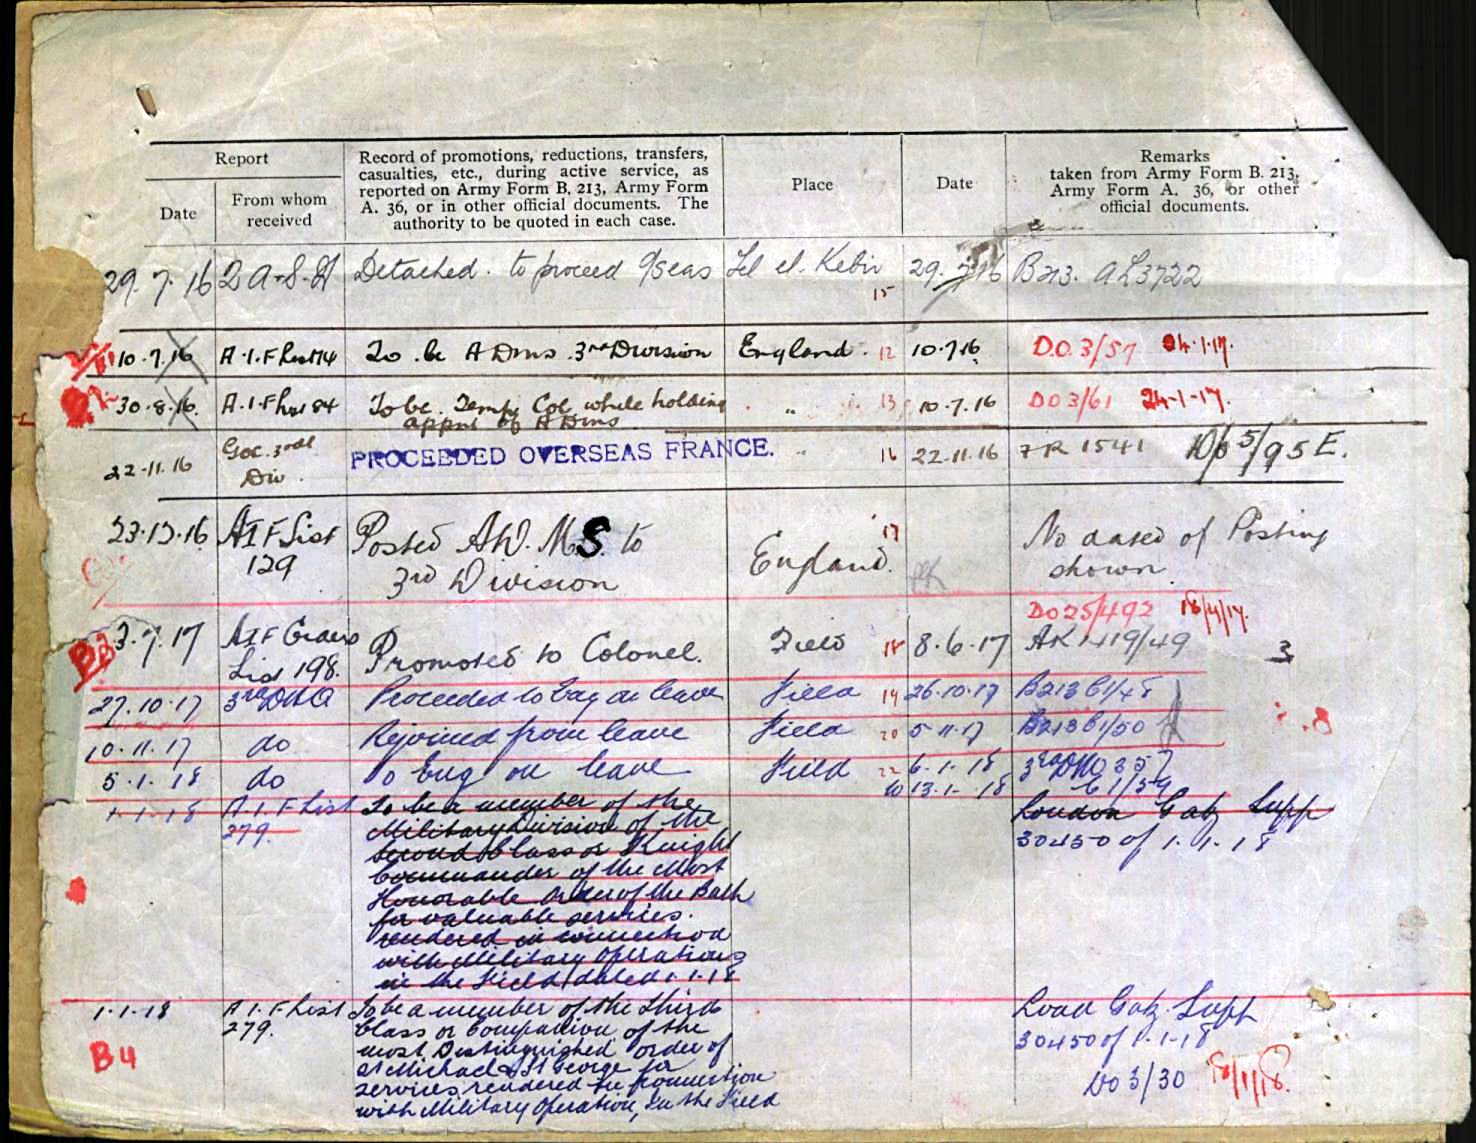 Report
Date
From whom
received
Record of promotions, reductions, transfers,
casualties, etc., during active service, as
reported on Army Form B. 213, Army Form
A. 36, or in other official documents. The
authority to be quoted in each case.
Place
Date
Remarks
taken from Army Form B. 213,
Army Form A. 36, or other
official documents.
29.7.16 2 A.S.H Detached. to proceed O/seas Tel el. Kebir 29.7.16 B213. AL3722
15
10.7.16 A.I.F List 74 To be ADMS 3rd Division England. 12 10.7.16 D.O.3/57
30.8.16. A.I.F List 84 To be. Temp Col while holding " 13 10.7.16 DO3/61 24-1-17.
appnt of ADMS
22-11.16 Goc. 3rd Div. PROCEEDED OVERSEAS FRANCE. " 16 22.11.16 7R 1541 5/95E.
23.12.16 AIF List Posted A.D.M.S. to 17 No dated of Posting
129 3rd Division England. shown.
DO25/492 18/4/17.
3.7.17 AIF List 198. Promoted to Colonel. Field 18 8.6.17 AK1419/49 3
27.10.17 3rd DHQ Proceeded to Eng on leave Field 19 26.10.17 B213
10.11.17 do Rejoined from leave Field 20 5.11.17 B213 61/50
5.1.18 do To Eng on leave Field 22 6-1-18 3rd DHQ
13-1-18 61/59
1-1-18 A.I.F List To be a member of the London Gaz Supp
279. Military division of the 30450 of 1.1.18
second Class or Knight
Commander of the Most
Honorable Order of the Bath
for valuable services.
rendered in connection
with Military Operations
in the Field dated 1.1.18
1-1-18 A.I.F List To be a member of the Third Lond Gaz. Supp
279. Class or Companion of the 30450 of 1-1-18
B4 most Distinguished order of
St Michael & St George for DO 3/30 18/1/18.
services rendered in connection
with Military Operation, In the Field